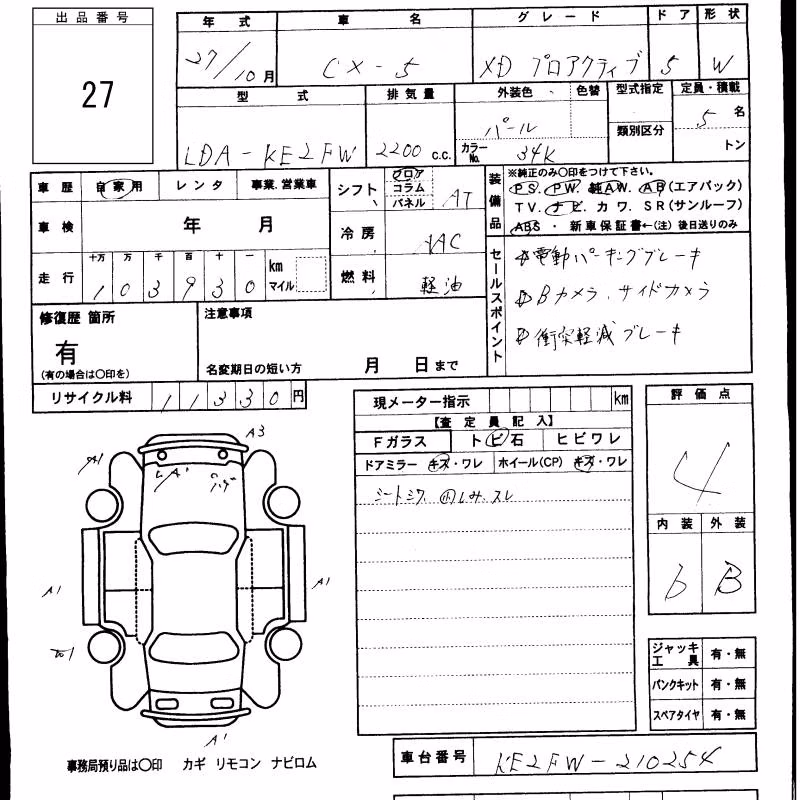 出品番号
27
年式 車名 グレード ドア 形状
27/10月 CX-5 XD プロアクティブ 5 W
型式 排気量 外装色 色替 型式指定 定員・積載
LDA-KE2FW 2200 c.c. パール 類別区分 5名
カラーNo. 34K トン
車歴 自家用 レンタ 事業.営業車
シフト フロア コラム パネル AT
装備品
※純正のみ〇印をつけて下さい。
PS. PW. 純AW. AB(エアバック)
TV. ナビ. カワ. SR(サンルーフ)
ABS ・ 新車保証書←(注)後日送りのみ
車検 年 月
冷房 AAC
走行 十万 万 千 百 十 一 km マイル
103930
燃料 軽油
セールスポイント
電動パーキングブレーキ
Bカメラ、サイドカメラ
衝突軽減ブレーキ
修復歴 箇所
有
(有の場合は〇印を)
注意事項
名変期日の短い方 月 日まで
リサイクル料 11330円
現メーター指示 km
【査定員記入】
Fガラス トビ石 ヒビワレ
ドアミラー キズ・ワレ ホイール(CP) キズ・ワレ
シートシワ. 内しみ.スレ
評価点
4
内装 外装
6 B
A3
A1
A1
A1
A1
ジャッキ工具 有・無
パンクキット 有・無
スペアタイヤ 有・無
事務局預り品は〇印 カギ リモコン ナビロム
車台番号 KE2FW-210254